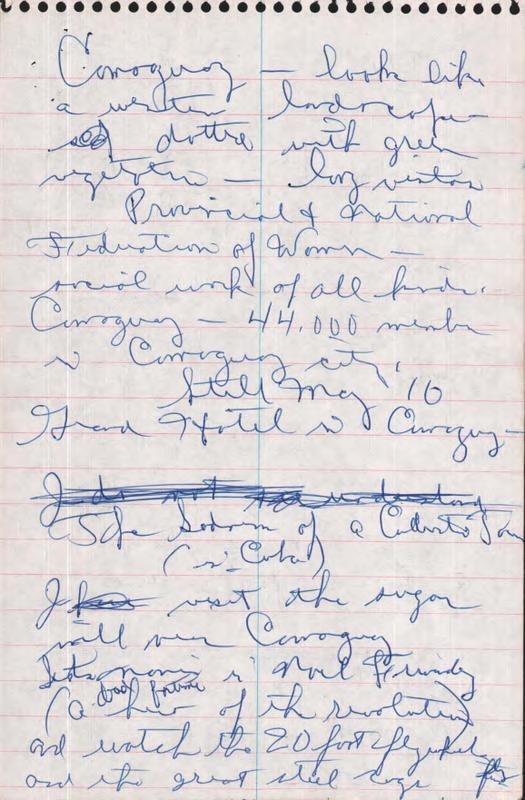 Camaguay — looks like
a western landscape
dotted with green
vegetation — long vistas
Provincial & National
Federation of Women —
social work of all kinds.
Camaguay — 44,000 members
in Camaguay city.
Still May 16
Grand Hotel in Camaguay —
I do not understand
The Sadness of a Tour
(in Cuba)
I visit the sugar
mill near Camaguay
Its name is Noel
(a hero of the revolution)
and watch the 20 foot flywheel
and the great steel cogs